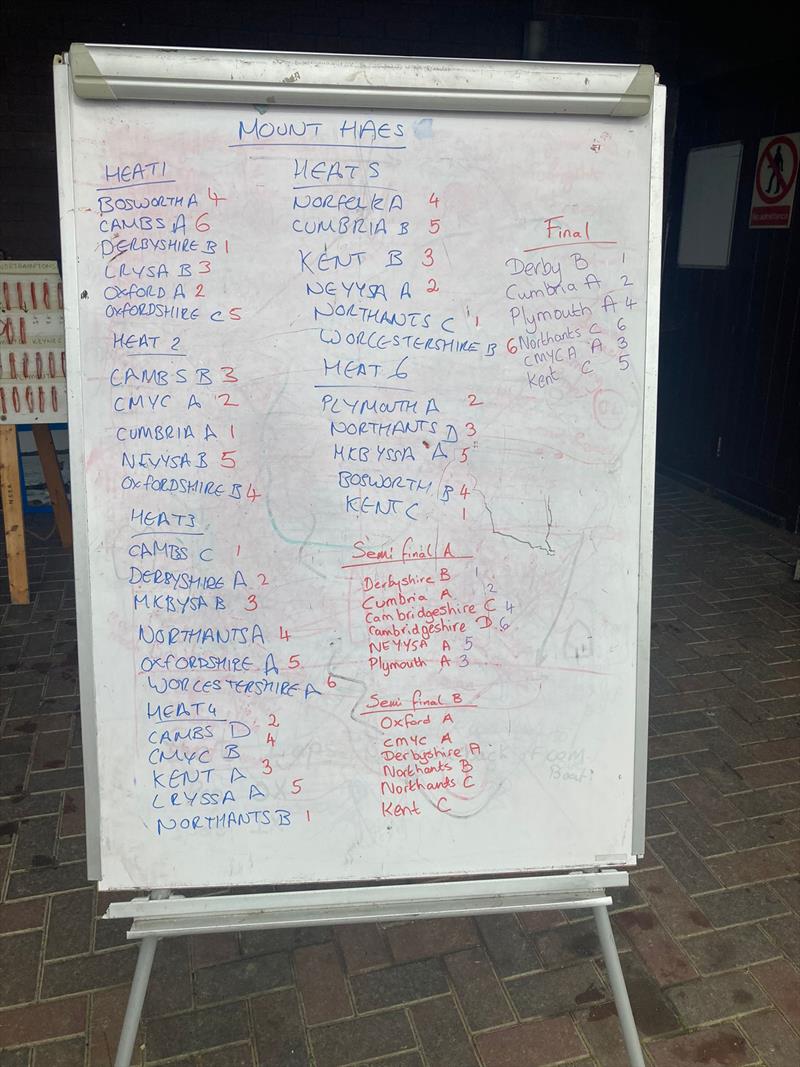 MOUNT HAES
HEAT 1
BOSWORTH A 4
CAMBS A 6
DERBYSHIRE B 1
LRYSA B 3
OXFORD A 2
OXFORDSHIRE C 5
HEAT 2
CAMBS B 3
CMYC A 2
CUMBRIA A 1
NEYYSA B 5
OXFORDSHIRE B 4
HEAT 3
CAMBS C 1
DERBYSHIRE A 2
MKBYSA B 3
NORTHANTS A 4
OXFORDSHIRE A 5
WORCESTERSHIRE A 6
HEAT 4
CAMBS D 2
CMYC B 4
KENT A 3
LRYSSA A 5
NORTHANTS B 1
HEAT 5
NORFOLK A 4
CUMBRIA B 5
KENT B 3
NEYYSA A 2
NORTHANTS C 1
WORCESTERSHIRE B 6
HEAT 6
PLYMOUTH A 2
NORTHANTS D 3
MKBYSSA A 5
BOSWORTH B 4
KENT C 1
Semi final A
Derbyshire B 1
Cumbria A 2
Cambridgeshire C 4
Cambridgeshire D 6
NEYYSA A 5
Plymouth A 3
Semi final B
Oxford A
CMYC A
Derbyshire A
Northants B
Northants C
Kent C
Final
Derby B 1
Cumbria A 2
Plymouth A 4
Northants C 6
CMYCA A 3
Kent C 5
No admittance